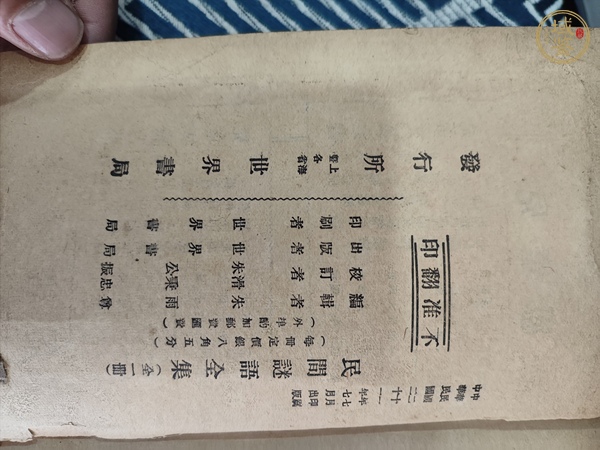 中華民國二十一年七月印刷
中華民國二十一年七月出版
民間謎語全集（全一冊）
（每冊定價銀八角五分）
（外埠酌加郵費匯費）
不准翻印
編輯者 朱雨尊
校訂者 滑忠
朱公振
出版者 世界書局
印刷者 世界書局
發行所 上海各省 世界書局